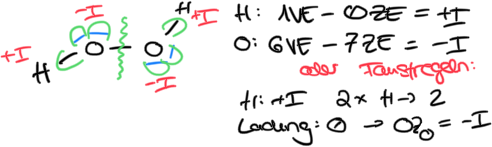 -I
H
+I
+I
O
O
H
-I
H: 1VE - 0ZE = +I
O: 6VE - 7ZE = -I
oder Faustregeln:
H: +I 2x H → 2
Ladung: 0 → O2O = -I